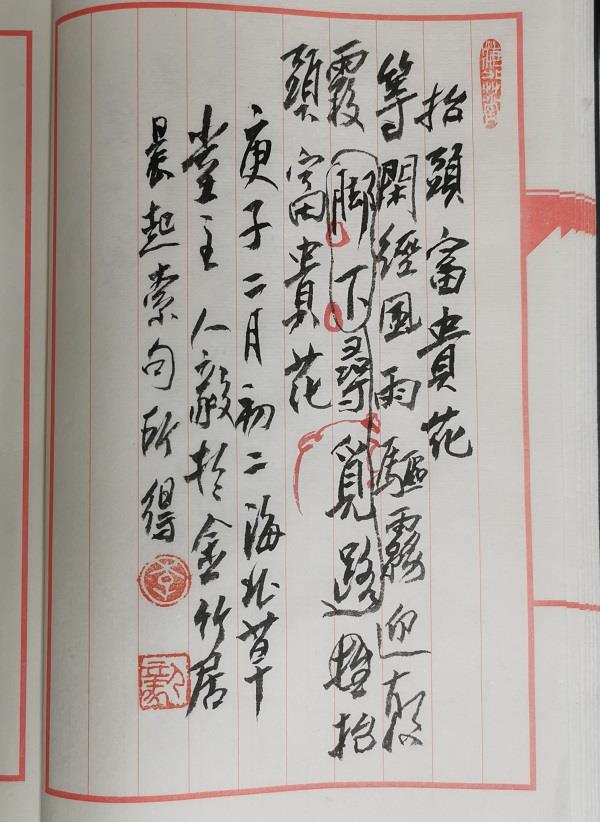 抬頭富貴花
等閑經風雨驅霧迎
霞脚下尋覓路抬
頭富貴花
庚子二月初二海北草
堂主人敲於金竹居
晨起索句所得